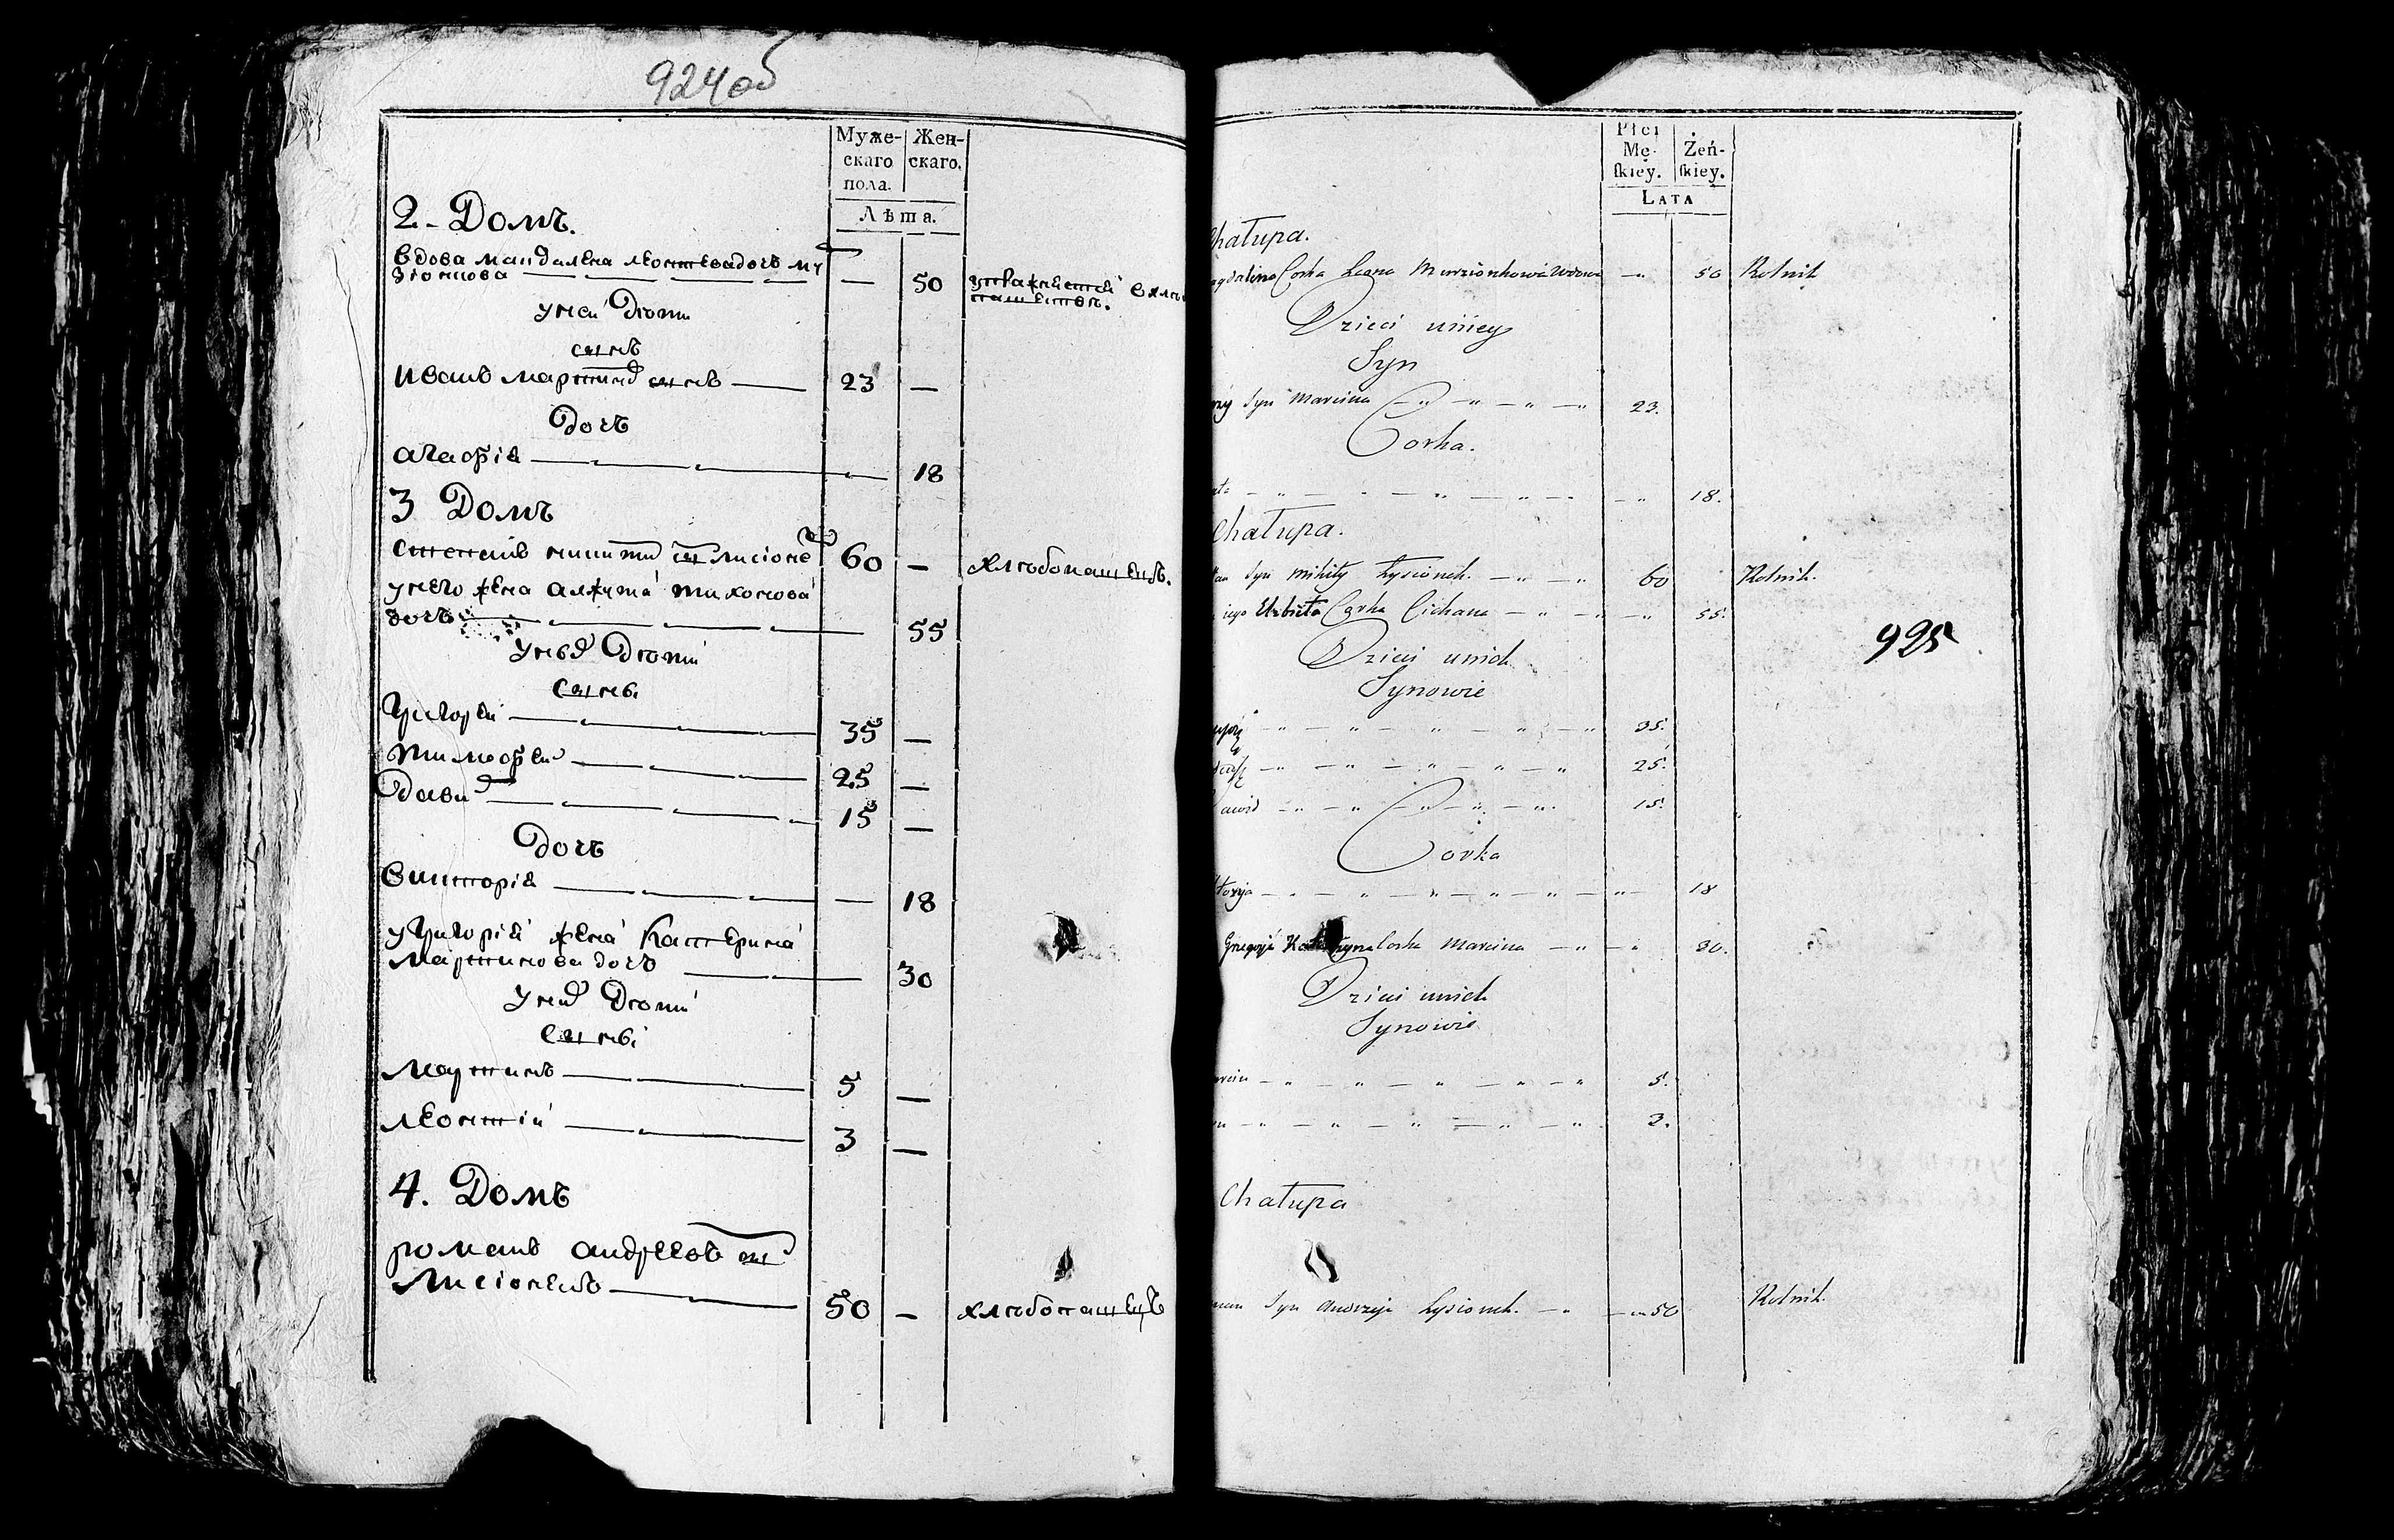 924об
Муже-
скаго
пола.
Жен-
скаго.
Лѣта.
2 - Домъ.
вдова магдалена леонтевадочь му
зюнкова — 50 упражняетсѧ в хлѣбо
пашествѣ.
у неи дѣти
сынъ
Иванъ мартинов сынъ — 23 —
дочь
агафія — 18
3 Домъ
степанъ никитин сын лисіоно 60 — хлѣбопашецъ.
у него жена алжута тихонова
дочь — 55
у нѣх дѣти
сынъ
григореи — 35 —
тимофеи — 25 —
давид — 15 —
дочь
викторія — — 18
у григорія жена катерина
мартинова дочь — 30
у них дѣти
сынъі
мартинъ — 5 —
леонтіи — 3 —
4. Домъ
романъ андреевъ сын
лисіонекъ — 50 — хлѣбопашецъ
Płci
Mę-
ſkiey.
Żeń-
ſkiey.
LATA
Chałupa.
agdalina Corka Leona Murzionkowa Wdowa — 50 Rolnik
Dzieci u niey
Syn
rzy Syn Marcina — 23.
Corka.
ata — 18.
Chałupa.
fan Syn Mikity Łysionek. — 60 Rolnik.
iego Elzbieta Corka Cichana — 55.
Dzieci u nich
Synowie
35.
25.
Dawid — 15.
Corka
ktorya — 18
Gregorja Katarzyna Corka Marcina — 30.
Dzieci u nich
Synowie
arcin — 5.
on — 3.
Chałupa
man Syn Andrzeja Łysionek. — 50 Rolnik.
925